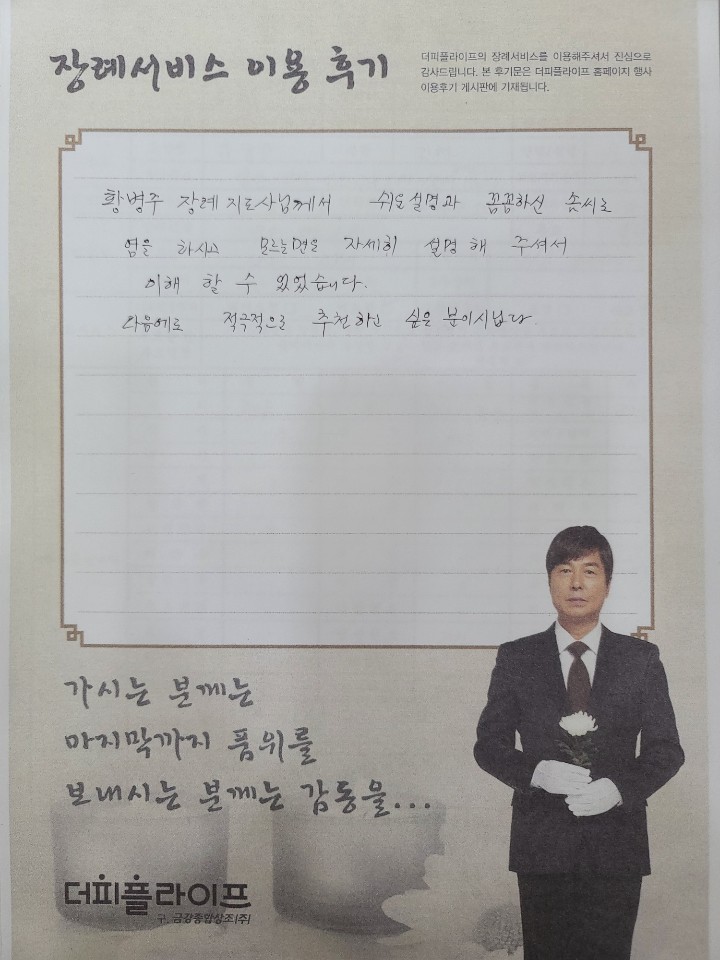 장례서비스 이용 후기
더피플라이프의 장례서비스를 이용해주셔서 진심으로
감사드립니다. 본 후기문은 더피플라이프 홈페이지 행사
이용후기 게시판에 기재됩니다.
황병주 장례지도사님께서 쉬운설명과 꼼꼼하신 솜씨로
염을 하시고 모르는면을 자세히 설명해 주셔서
이해 할 수 있었습니다.
다음에로 적극적으로 추천하신 싶은 분이시닙다.
가시는 분께는
마지막까지 품위를
보내시는 분께는 감동을...
더피플라이프
구. 금강종합상조(주)